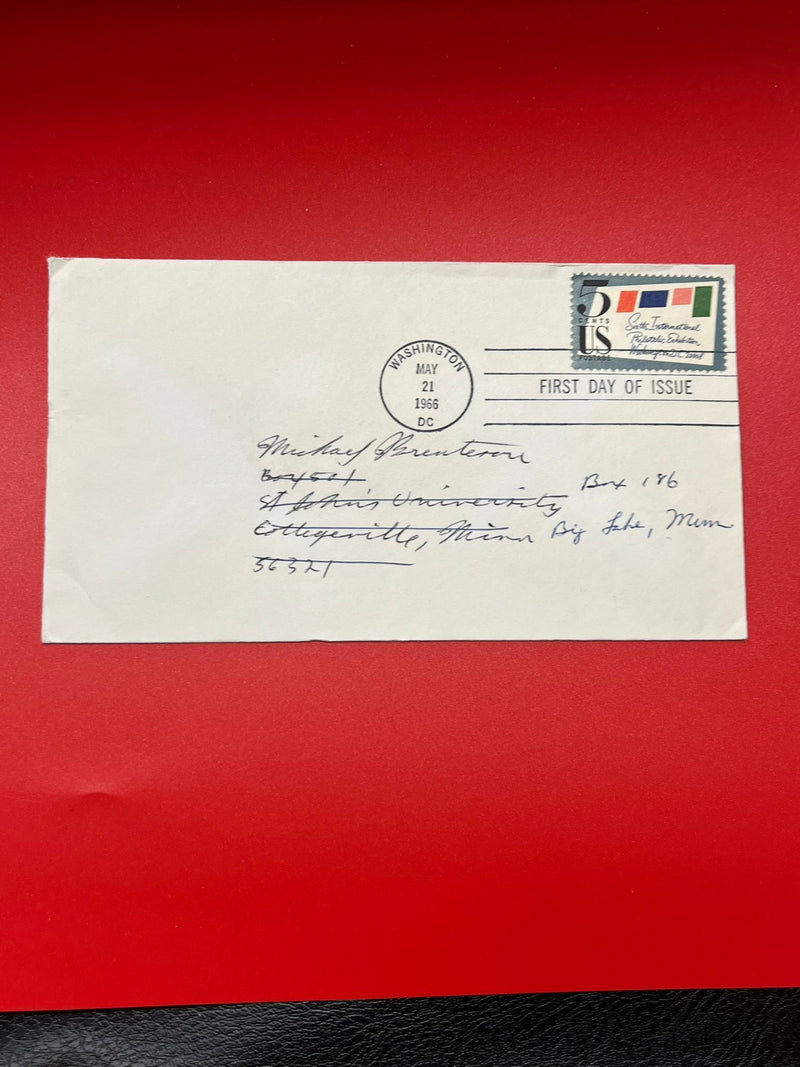 5
CENTS
US
POSTAGE
Sixth International
Philatelic Exhibition
Washington D.C.
WASHINGTON
MAY
21
1966
DC
FIRST DAY OF ISSUE
Michael
Box 501
St John's University
Collegeville, Minn
56321
Box 186
Big Lake, Minn